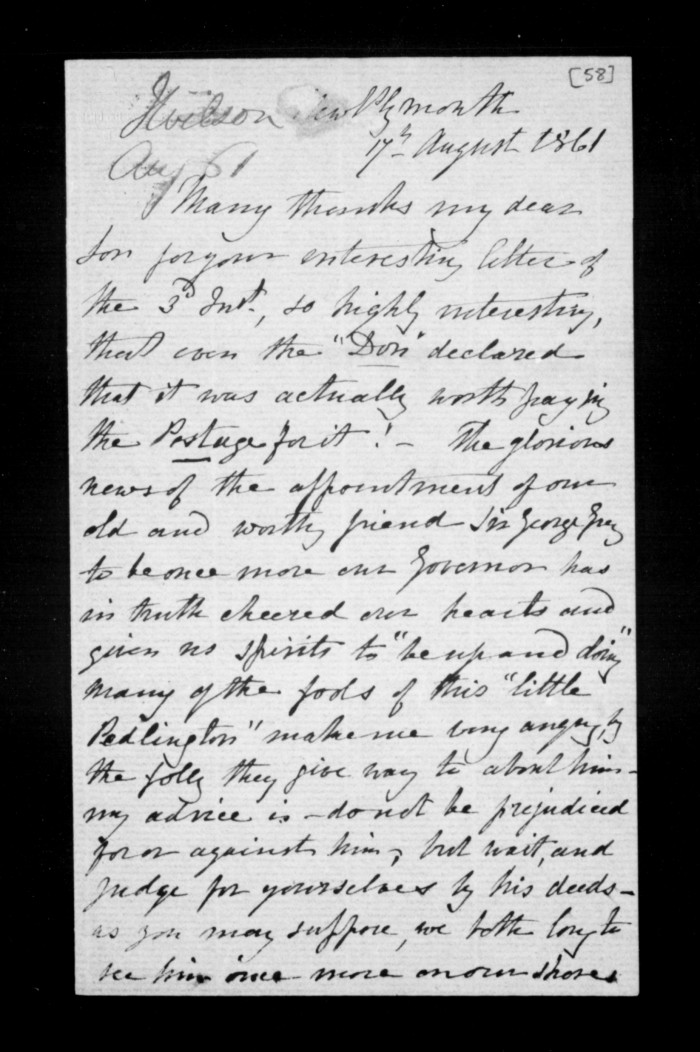 [58]
New Plymouth
17th August 1861
Aug 61
Many thanks my dear
Son for your interesting letter of
the 3d Inst., so highly interesting,
that even the "Don" declared
that it was actually worth paying
the Postage for it! - The glorious
news of the appointment of our
old and worthy friend Sir George Grey
to be once more our Governor has
in truth cheered our hearts and
given us spirits to "be up and doing"
Many of the fools of this "little
Pedlington" make me very angry, by
the folly they give way to about him -
my advice is - do not be prejudiced
for or against him, but wait, and
judge for yourselves by his deeds -
as you may suppose, we both long to
see him once more on our shores